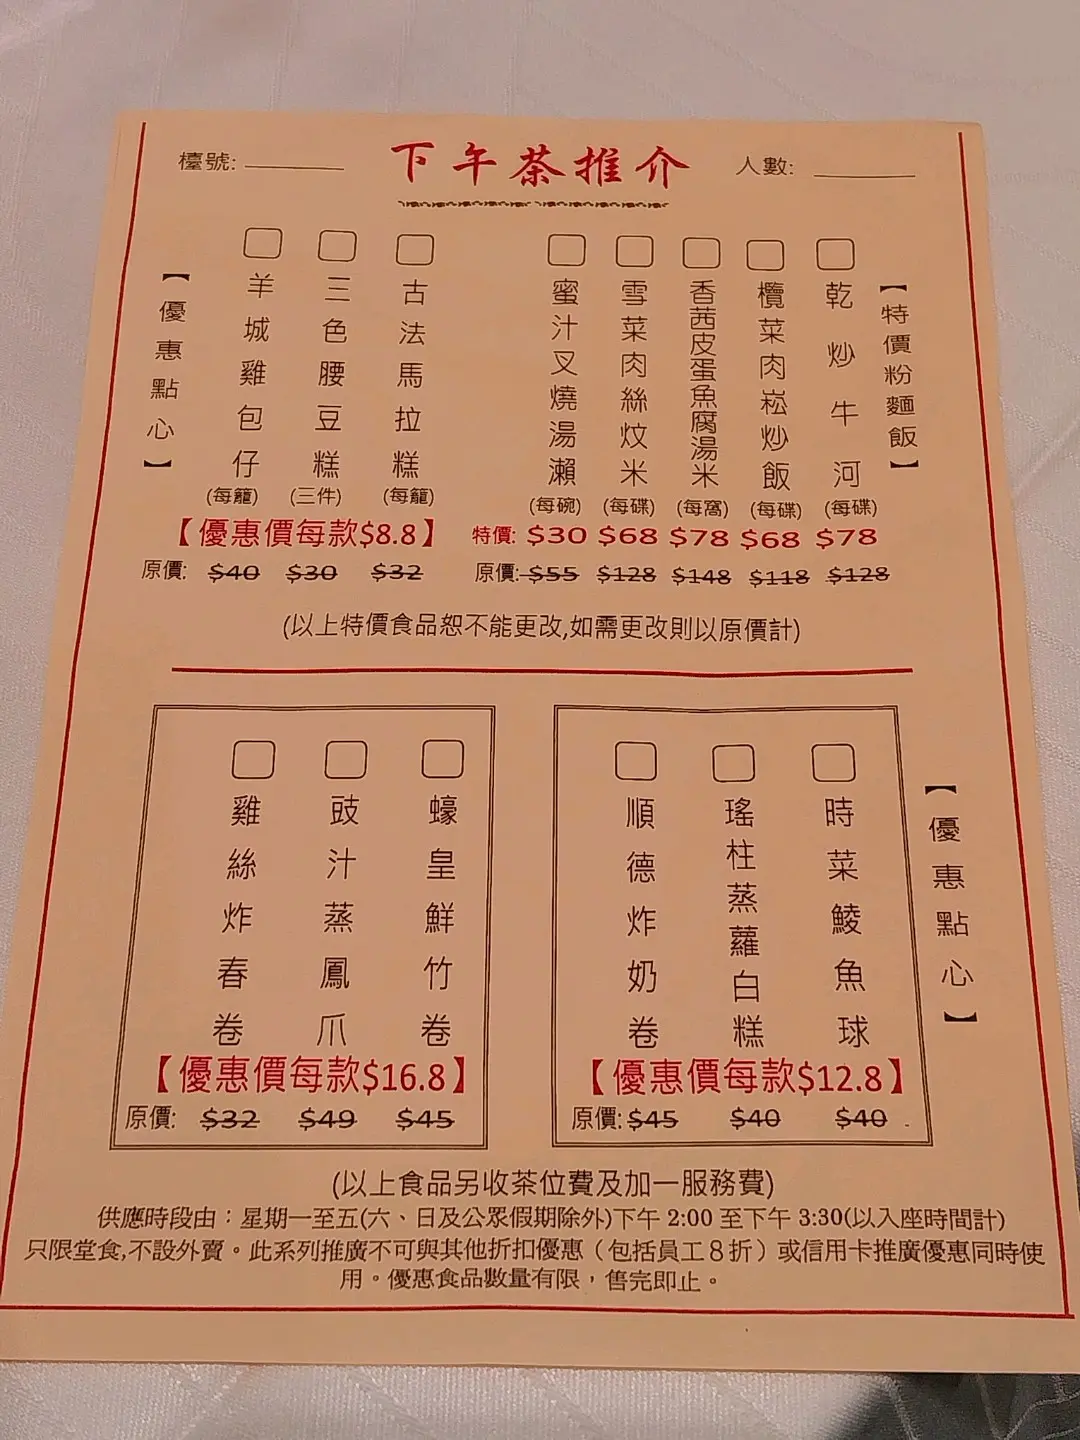 檯號:
下午茶推介
人數:
【特價粉麵飯】
乾炒牛河
(每碟)
欖菜肉崧炒飯
(每碟)
香茜皮蛋魚腐湯米
(每窩)
雪菜肉絲炆米
(每碟)
蜜汁叉燒湯瀨
(每碗)
特價: $30 $68 $78 $68 $78
原價: $55 $128 $148 $118 $128
古法馬拉糕
(每籠)
三色腰豆糕
(三件)
羊城雞包仔
(每籠)
【優惠點心】
【優惠價每款$8.8】
原價: $40 $30 $32
(以上特價食品恕不能更改,如需更改則以原價計)
【優惠點心】
時菜鯪魚球
瑤柱蒸蘿白糕
順德炸奶卷
【優惠價每款$12.8】
原價: $45 $40 $40
蠔皇鮮竹卷
豉汁蒸鳳爪
雞絲炸春卷
【優惠價每款$16.8】
原價: $32 $49 $45
(以上食品另收茶位費及加一服務費)
供應時段由：星期一至五(六、日及公眾假期除外)下午 2:00 至下午 3:30(以入座時間計)
只限堂食,不設外賣。此系列推廣不可與其他折扣優惠（包括員工８折）或信用卡推廣優惠同時使
用。優惠食品數量有限，售完即止。